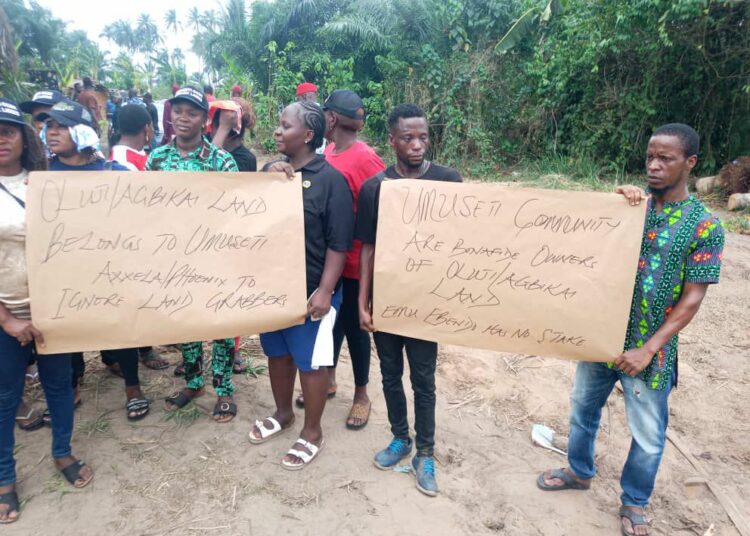 OLUTI/AGBIKAI LAND
BELONGS TO UMUSETI
AXXELA/PHOENIX TO
IGNORE LAND GRABBERS
UMUSETI COMMUNITY
ARE BONAFIDE OWNERS
OF OLUTI/AGBIKAI
LAND
EMU EBENDO HAS NO STAKE